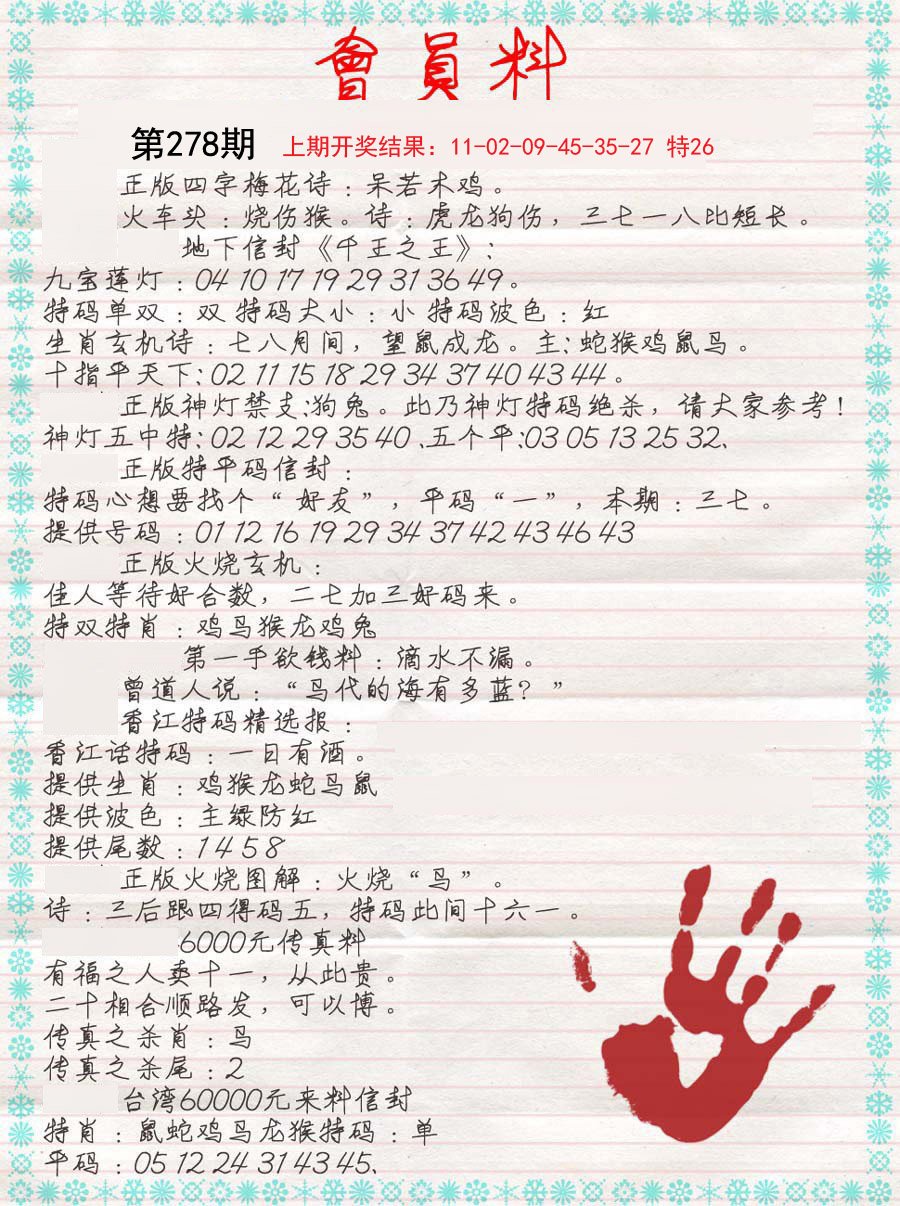 會員料
第278期 上期开奖结果：11-02-09-45-35-27 特26
正版四字梅花诗：呆若木鸡。
火车头：烧伤猴。诗：虎龙狗伤，三七一八比短长。
地下信封《千王之王》：
九宝莲灯：04 10 17 19 29 31 36 49。
特码单双：双 特码大小：小 特码波色：红
生肖玄机诗：七八月间，望鼠成龙。主：蛇猴鸡鼠鸟。
十指平天下：02 11 15 18 29 34 37 40 43 44。
正版神灯禁支：狗兔。此乃神灯特码绝杀，请大家参考！
神灯五中特：02 12 29 35 40、五个平：03 05 13 25 32、
正版特平码信封：
特码心想要找个“好友”，平码“一”，本期：三七。
提供号码：01 12 16 19 29 34 37 42 43 46 43
正版火烧玄机：
佳人等待好合数，二七加三好码来。
特双特肖：鸡鸟猴龙鸡兔
第一手欲钱料：滴水不漏。
曾道人说：“鸟代的海有多蓝？”
香江特码精选报：
香江话特码：一日有酒。
提供生肖：鸡猴龙蛇鸟鼠
提供波色：主绿防红
提供尾数：1 4 5 8
正版火烧图解：火烧“鸟”。
诗：三后跟四得码五，特码此间十六一。
6000元传真料
有福之人卖十一，从此贵。
二十相合顺路发，可以博。
传真之杀肖：鸟
传真之杀尾：2
台湾60000元来料信封
特肖：鼠蛇鸡鸟龙猴特码：单
平码：05 12 24 31 43 45、